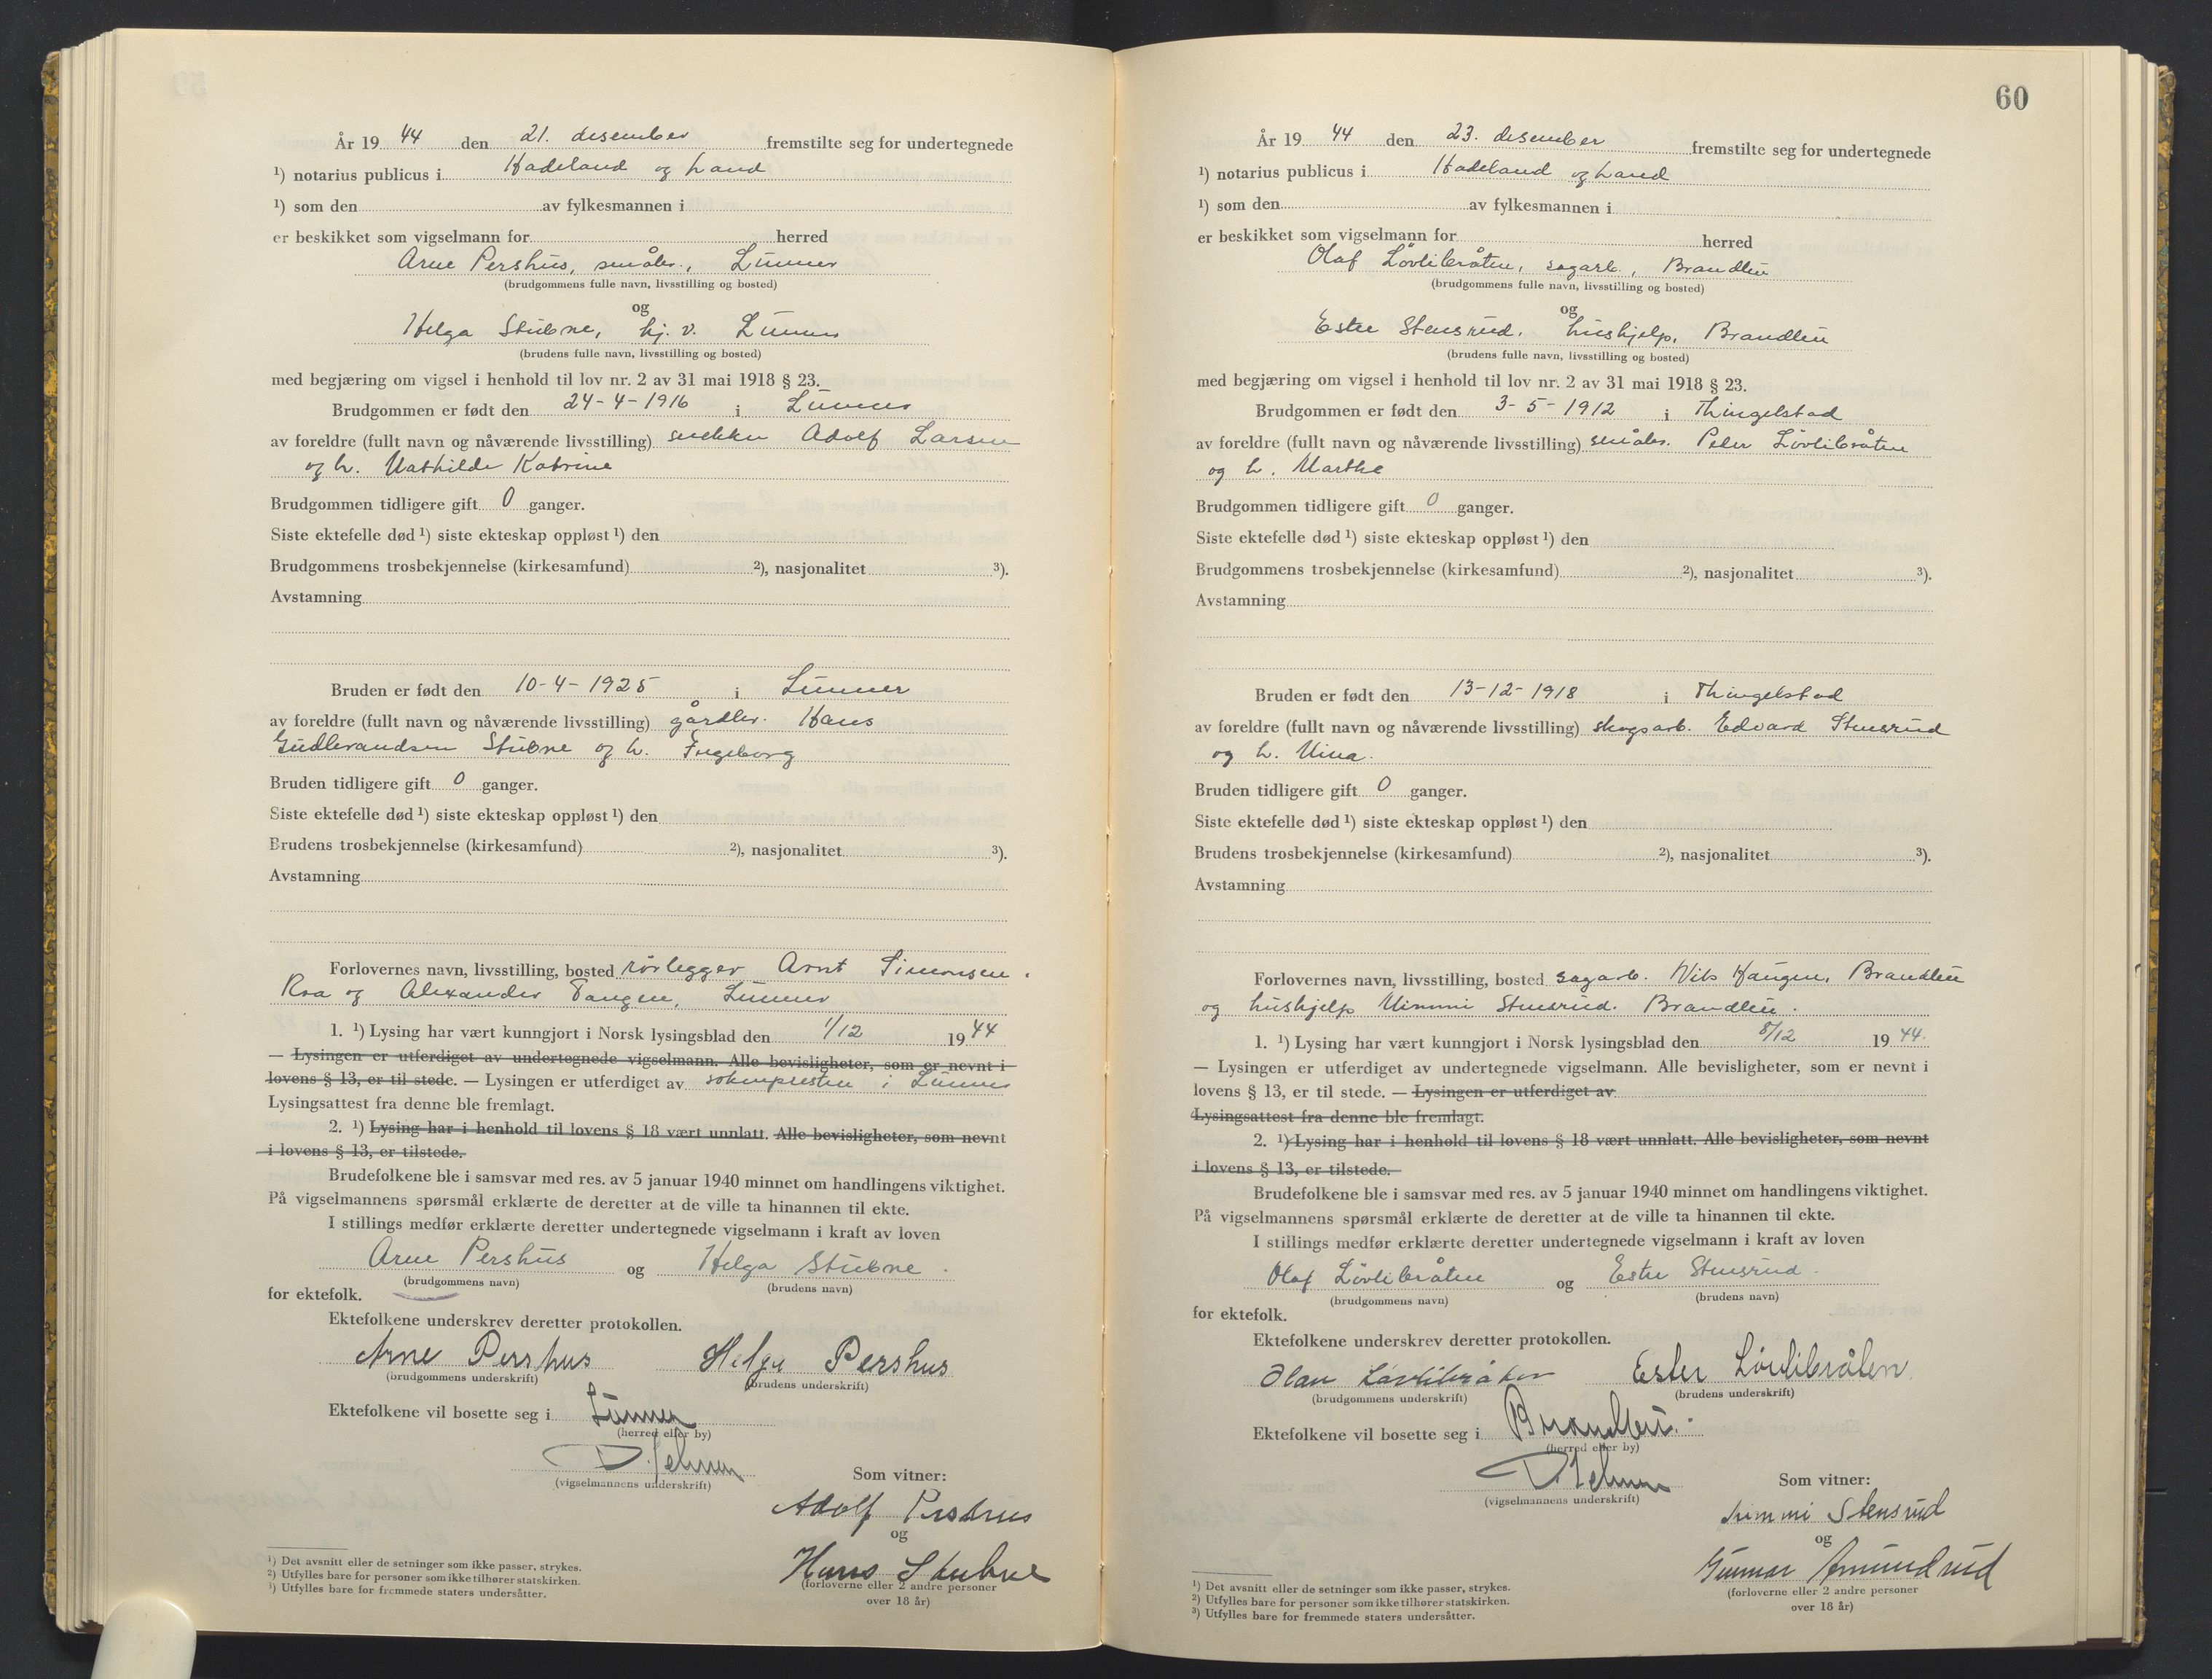 År 19 44 den 21. desember fremstilte seg for undertegnede
¹) notarius publicus i Hadeland og Land
¹) som den av fylkesmannen i
er beskikket som vigselmann for herred
Arne Pershus, småbr., Lunner
(brudgommens fulle navn, livsstilling og bosted)
og
Helga Stubne, hj. v. Lunner
(brudens fulle navn, livsstilling og bosted)
med begjæring om vigsel i henhold til lov nr. 2 av 31 mai 1918 § 23.
Brudgommen er født den 24-4-1916 i Lunner
av foreldre (fullt navn og nåværende livsstilling) snekker Adolf Larsen
og h. Mathilde Katrine
Brudgommen tidligere gift 0 ganger.
Siste ektefelle død ¹) siste ekteskap oppløst ¹) den
Brudgommens trosbekjennelse (kirkesamfund) ²), nasjonalitet ³).
Avstamning
Bruden er født den 10-4-1925 i Lunner
av foreldre (fullt navn og nåværende livsstilling) gårdbr. Hans
Gudbrandsen Stubne og h. Ingeborg
Bruden tidligere gift 0 ganger.
Siste ektefelle død ¹) siste ekteskap oppløst ¹) den
Brudens trosbekjennelse (kirkesamfund) ²), nasjonalitet ³).
Avstamning
Forlovernes navn, livsstilling, bosted rørlegger Arnt Simonsen.
Roa og Alexander Tangen, Lunner
1. ¹) Lysing har vært kunngjort i Norsk lysingsblad den 1/12 19 44
— Lysingen er utferdiget av undertegnede vigselmann. Alle bevisligheter, som er nevnt i
lovens § 13, er til stede. — Lysingen er utferdiget av soknepresten i Lunner
Lysingsattest fra denne ble fremlagt.
2. ¹) Lysing har i henhold til lovens § 18 vært unnlatt. Alle bevisligheter, som nevnt
i lovens § 13, er tilstede.
Brudefolkene ble i samsvar med res. av 5 januar 1940 minnet om handlingens viktighet.
På vigselmannens spørsmål erklærte de deretter at de ville ta hinannen til ekte.
I stillings medfør erklærte deretter undertegnede vigselmann i kraft av loven
Arne Pershus og Helga Stubne.
(brudgommens navn) (brudens navn)
for ektefolk.
Ektefolkene underskrev deretter protokollen.
Arne Pershus Helga Pershus
(brudgommens underskrift) (brudens underskrift)
Ektefolkene vil bosette seg i Lunner
(herred eller by)
(vigselmannens underskrift)
Som vitner:
Adolf Pershus
og
Hans Stubne
(forloverne eller 2 andre personer
over 18 år)
¹) Det avsnitt eller de setninger som ikke passer, strykes.
²) Utfylles bare for personer som ikke tilhører statskirken.
³) Utfylles bare for fremmede staters undersåtter.
60
År 19 44 den 23. desember fremstilte seg for undertegnede
¹) notarius publicus i Hadeland og Land
¹) som den av fylkesmannen i
er beskikket som vigselmann for herred
Olaf Lövlibråten, sagarb., Brandbu
(brudgommens fulle navn, livsstilling og bosted)
og
Ester Stensrud. hushjelp, Brandbu
(brudens fulle navn, livsstilling og bosted)
med begjæring om vigsel i henhold til lov nr. 2 av 31 mai 1918 § 23.
Brudgommen er født den 3-5-1912 i Thingelstad
av foreldre (fullt navn og nåværende livsstilling) småbr. Peder Lövlibråten
og h. Marthe
Brudgommen tidligere gift 0 ganger.
Siste ektefelle død ¹) siste ekteskap oppløst ¹) den
Brudgommens trosbekjennelse (kirkesamfund) ²), nasjonalitet ³).
Avstamning
Bruden er født den 13-12-1918 i Thingelstad
av foreldre (fullt navn og nåværende livsstilling) skogsarb. Edvard Stensrud
og h. Mina.
Bruden tidligere gift 0 ganger.
Siste ektefelle død ¹) siste ekteskap oppløst ¹) den
Brudens trosbekjennelse (kirkesamfund) ²), nasjonalitet ³).
Avstamning
Forlovernes navn, livsstilling, bosted sagarb. Nils Haugen, Brandbu
og hushjelp Mimmi Stensrud. Brandbu.
1. ¹) Lysing har vært kunngjort i Norsk lysingsblad den 8/12 19 44.
— Lysingen er utferdiget av undertegnede vigselmann. Alle bevisligheter, som er nevnt i
lovens § 13, er til stede. — Lysingen er utferdiget av
Lysingsattest fra denne ble fremlagt.
2. ¹) Lysing har i henhold til lovens § 18 vært unnlatt. Alle bevisligheter, som nevnt
i lovens § 13, er tilstede.
Brudefolkene ble i samsvar med res. av 5 januar 1940 minnet om handlingens viktighet.
På vigselmannens spørsmål erklærte de deretter at de ville ta hinannen til ekte.
I stillings medfør erklærte deretter undertegnede vigselmann i kraft av loven
Olaf Lövlibråten og Ester Stensrud.
(brudgommens navn) (brudens navn)
for ektefolk.
Ektefolkene underskrev deretter protokollen.
Olav Lövlibråten Ester Lövlibråten
(brudgommens underskrift) (brudens underskrift)
Ektefolkene vil bosette seg i Brandbu.
(herred eller by)
(vigselmannens underskrift)
Som vitner:
Mimmi Stensrud
og
Gunnar Amundrud
(forloverne eller 2 andre personer
over 18 år)
¹) Det avsnitt eller de setninger som ikke passer, strykes.
²) Utfylles bare for personer som ikke tilhører statskirken.
³) Utfylles bare for fremmede staters undersåtter.